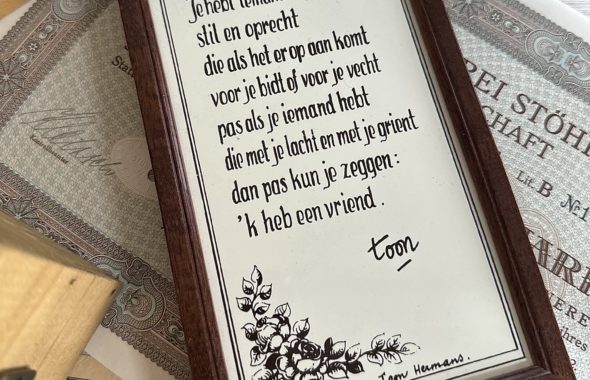 Je hebt iemand
stil en oprecht
die als het er op aan komt
voor je bidt of voor je vecht
pas als je iemand hebt
die met je lacht en met je grient
dan pas kun je zeggen:
'k heb een vriend.
toon
Toon Hermans.
REI STÖH
SCHAFT
Lit. B № 1